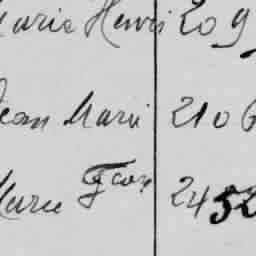 Marie Henri 209
Jean Marie 2106
Marie Fcois 2452